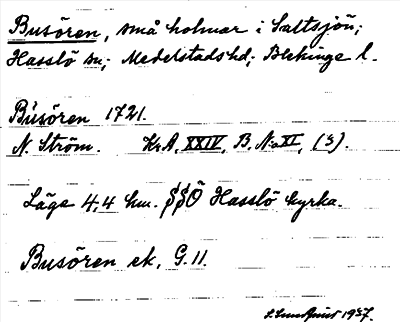 Busören, små holmar i Saltsjön;
Hasslö sn; Medelstads hd; Blekinge l.
Busören 1721.
N. Ström. Kr.A. XXIV, B. N:o XI, (3).
Läge 4,4 km. SSÖ Hasslö kyrka.
Busören ek. G.11.
1937.